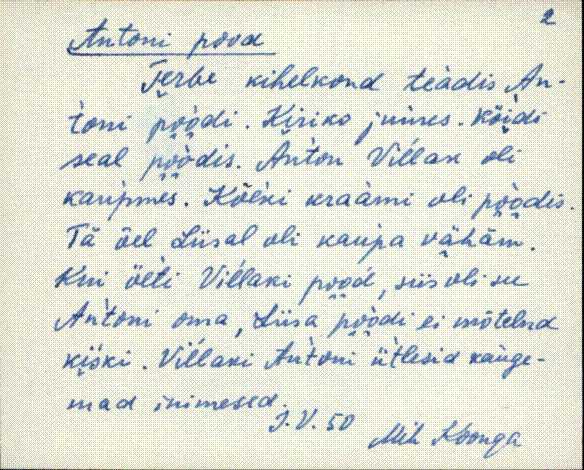 2
Antoni pood
Terbe kihelkond teàdis An-
toni pòòdi. Kiriko juures. Kõìdi
seal pòòdis. Anton Villak oli
kaupmes. Kõìki kraàmi oli pòòdis.
Tä õel Liisal oli kaupa vähäm.
Kui öeti Villaki pood, siis oli su
Antoni oma, Liisa pòòdi ei mõtelnd
kiski. Villaki Antoni ütlesid kauge-
mad inimesed.
J. V. 50
Mih Koonga